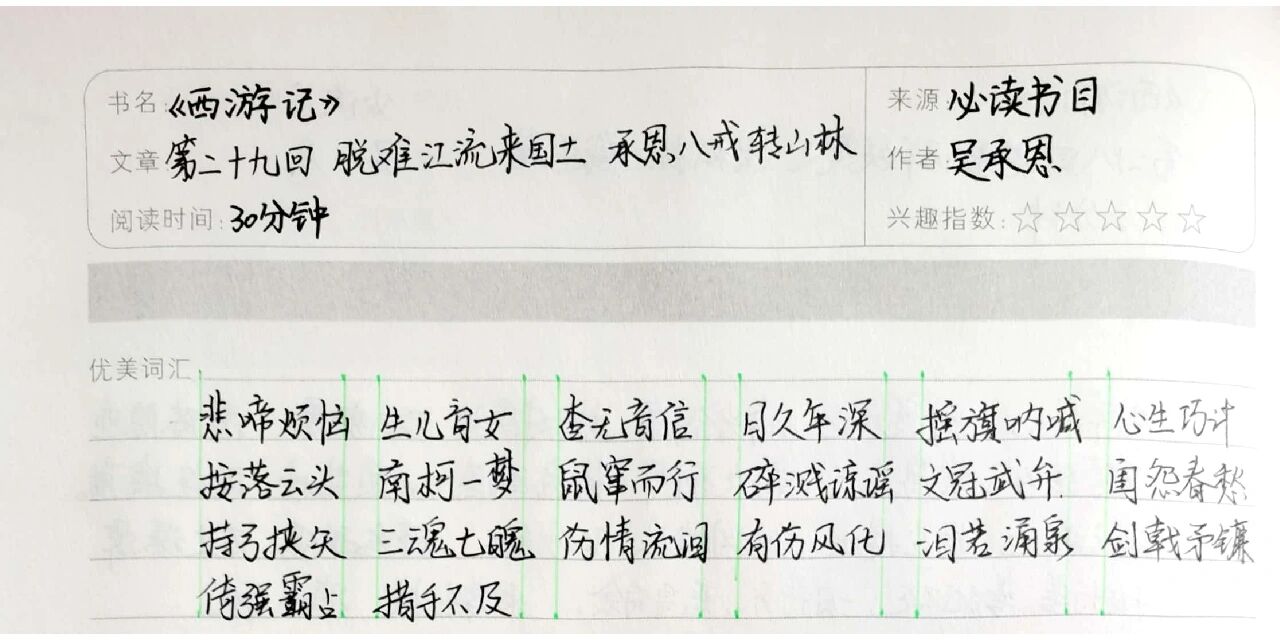 书名:《西游记》 来源:必读书目
文章:第二十九回 脱难江流来国土 承恩八戒转山林 作者:吴承恩
阅读时间:30分钟 兴趣指数:☆☆☆☆☆
优美词汇
悲啼烦恼 生儿育女 杳无音信 日久年深 摇旗呐喊 心生巧计
按落云头 南柯一梦 鼠窜而行 碎溅谅谣 文冠武弁 闺怨春愁
持弓挟矢 三魂七魄 伤情流泪 有伤风化 泪若涌泉 剑戟矛镰
倚强霸占 措手不及